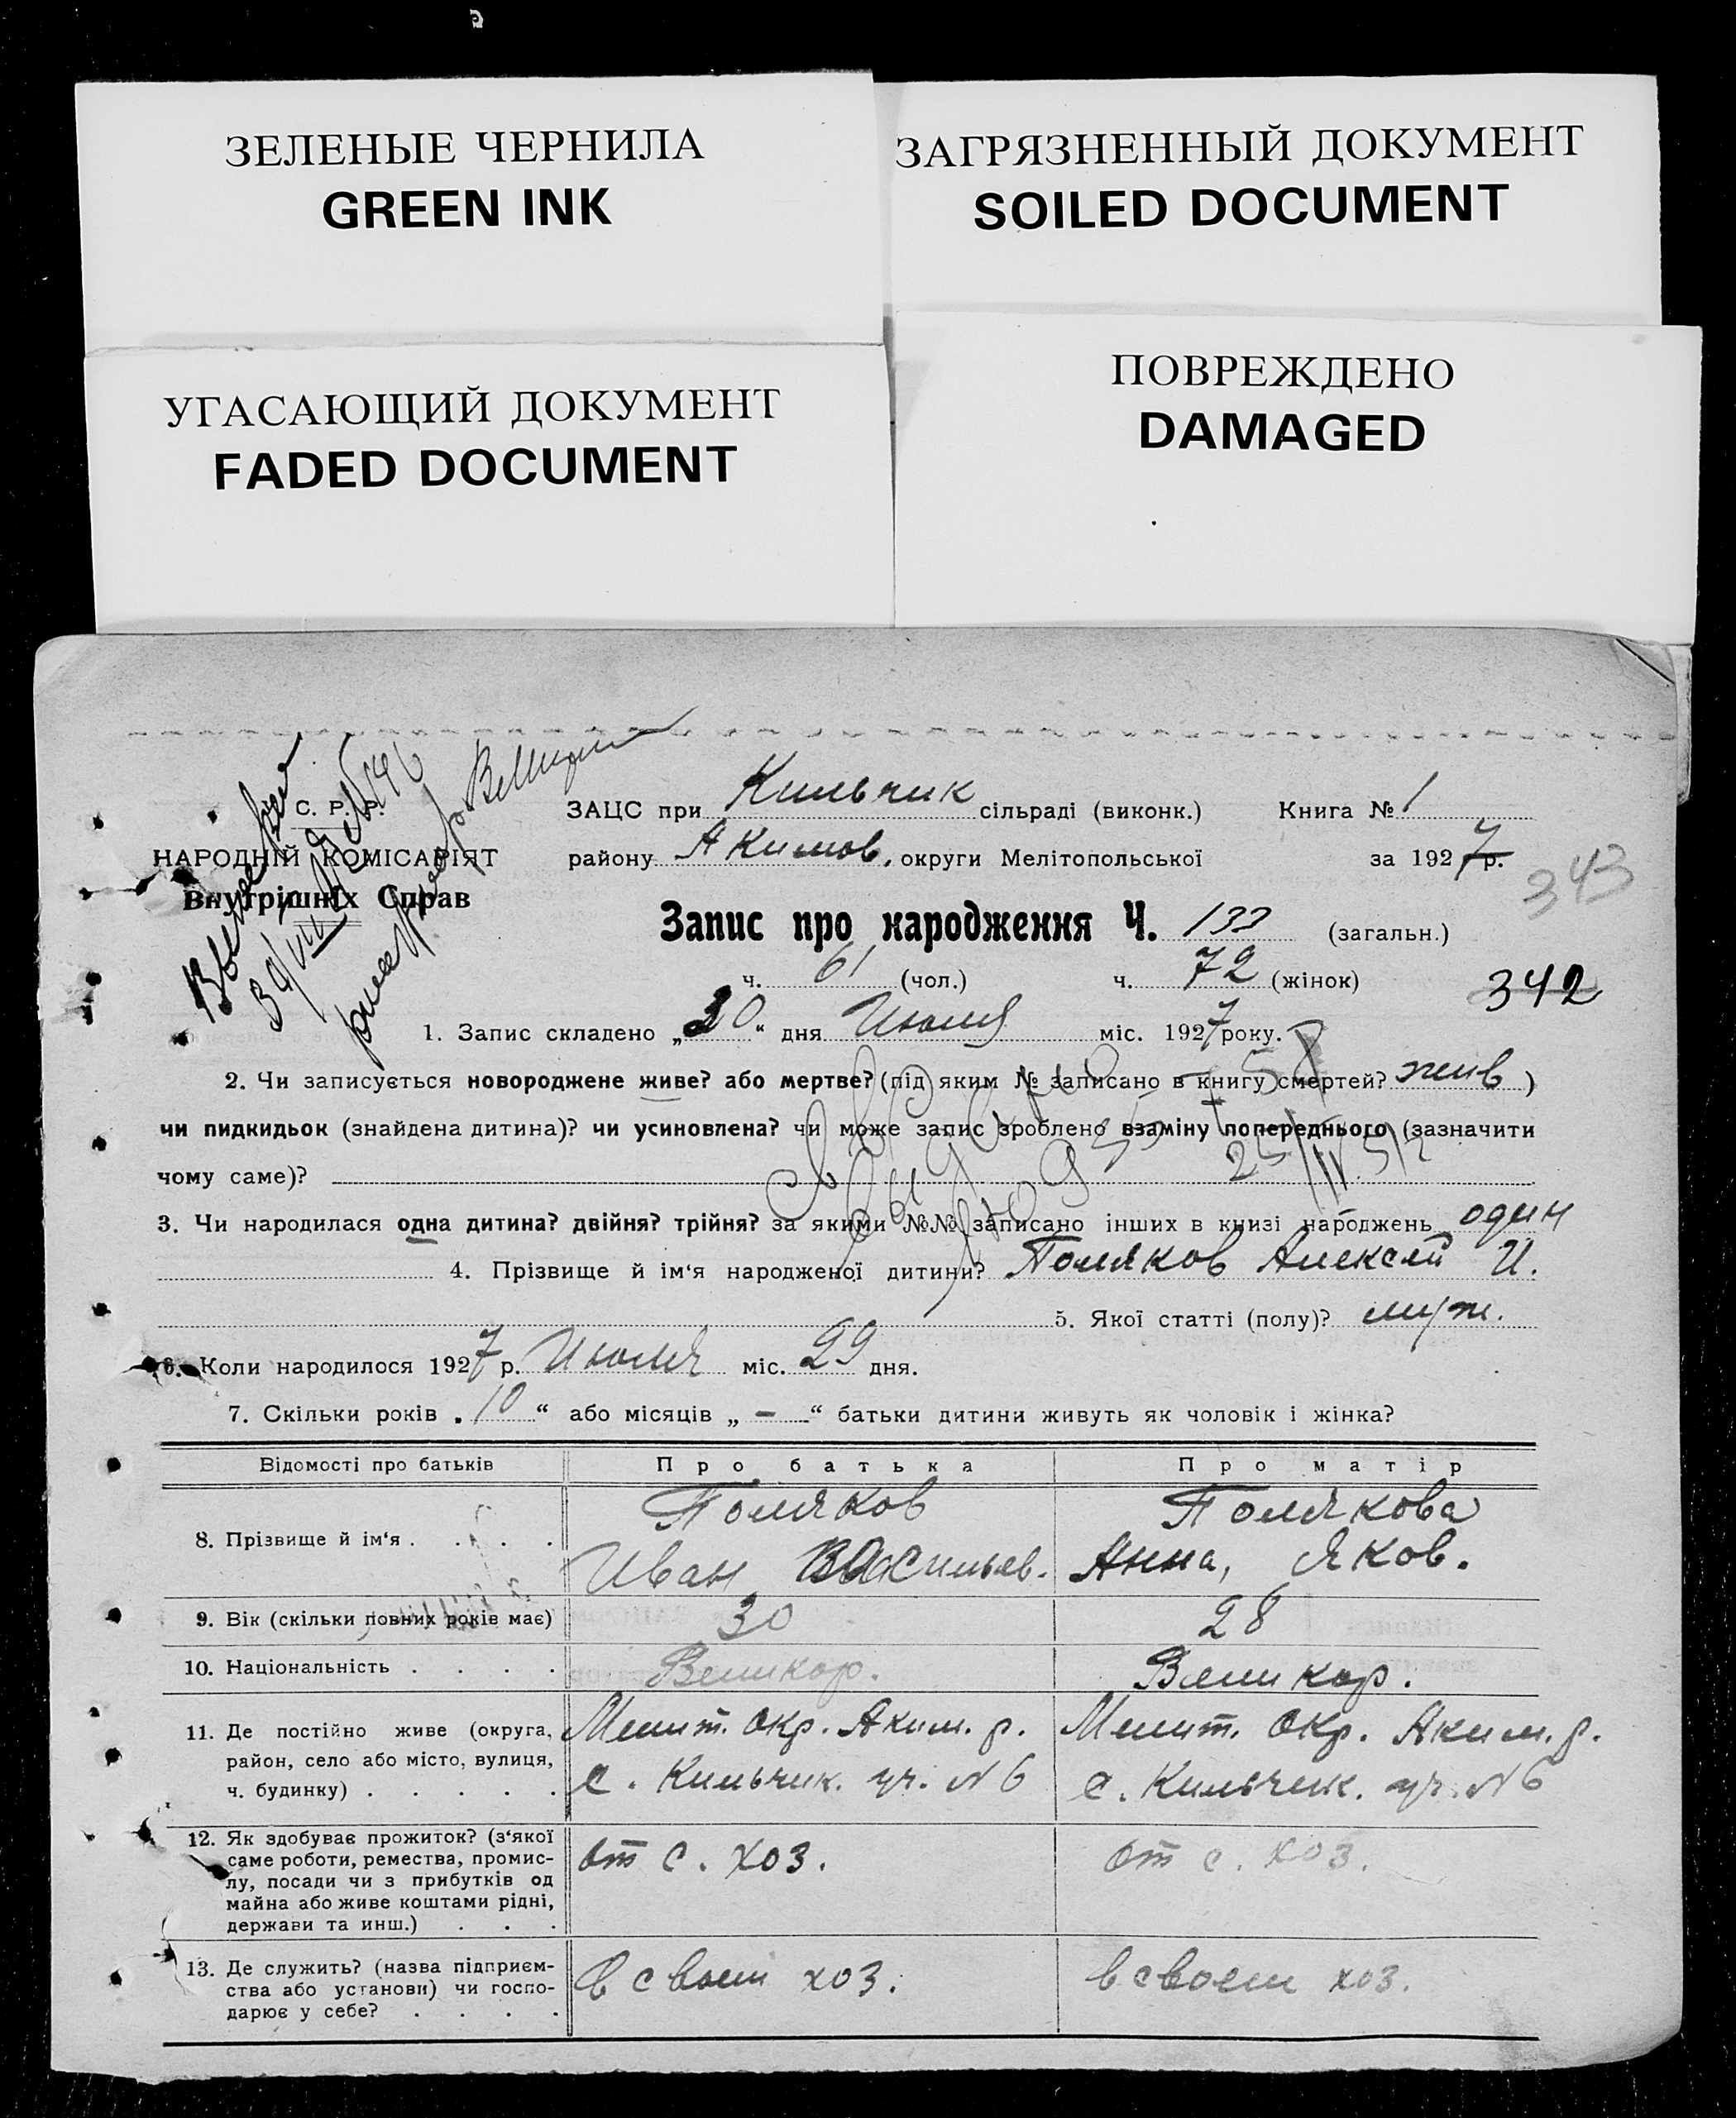 ЗЕЛЕНЫЕ ЧЕРНИЛА
GREEN INK
ЗАГРЯЗНЕННЫЙ ДОКУМЕНТ
SOILED DOCUMENT
УГАСАЮЩИЙ ДОКУМЕНТ
FADED DOCUMENT
ПОВРЕЖДЕНО
DAMAGED
С. Р. Р.
НАРОДНІЙ КОМІСАРІЯТ
Внутрішніх Справ
ЗАЦС при Кильчик сільраді (виконк.) Книга № 1
району Акимов. округи Мелітопольської за 1927 р.
343
Запис про народження Ч. 133 (загальн.)
ч. 61 (чол.) ч. 72 (жінок)
342
1. Запис складено „30“ дня Июля міс. 1927 року.
2. Чи записується новороджене живе? або мертве? (під яким № записано в книгу смертей? жив )
чи пидкидьок (знайдена дитина)? чи усиновлена? чи може запис зроблено взаміну попереднього (зазначити
чому саме)?
3. Чи народилася одна дитина? двійня? трійня? за якими №№ записано інших в книзі народжень один
4. Прізвище й ім‘я народженої дитини? Поляков Алексей И.
5. Якої статті (полу)? муж.
6. Коли народилося 1927 р. Июля міс. 29 дня.
7. Скільки років „10“ або місяців „ – “ батьки дитини живуть як чоловік і жінка?
Відомості про батьків Про батька Про матір
8. Прізвище й ім‘я . . . . Поляков Иван Васильев. Полякова Анна, Яков.
9. Вік (скільки повних років має) 30 28
10. Національність . . . . Великор. Великор.
11. Де постійно живе (округа, Мелит. окр. Аким. р. Мелит. окр. Аким. р.
район, село або місто, вулиця,
ч. будинку) . . . . . с. Кильчик. уч. N 6 с. Кильчик. уч. N 6
12. Як здобуває прожиток? (з‘якої
саме роботи, ремества, промис- от с. хоз. от с. хоз.
лу, посади чи з прибутків од
майна або живе коштами рідні,
держави та инш.) . . .
13. Де служить? (назва підприєм-
ства або установи) чи госпо- в своем хоз. в своем хоз.
дарює у себе? . . . .